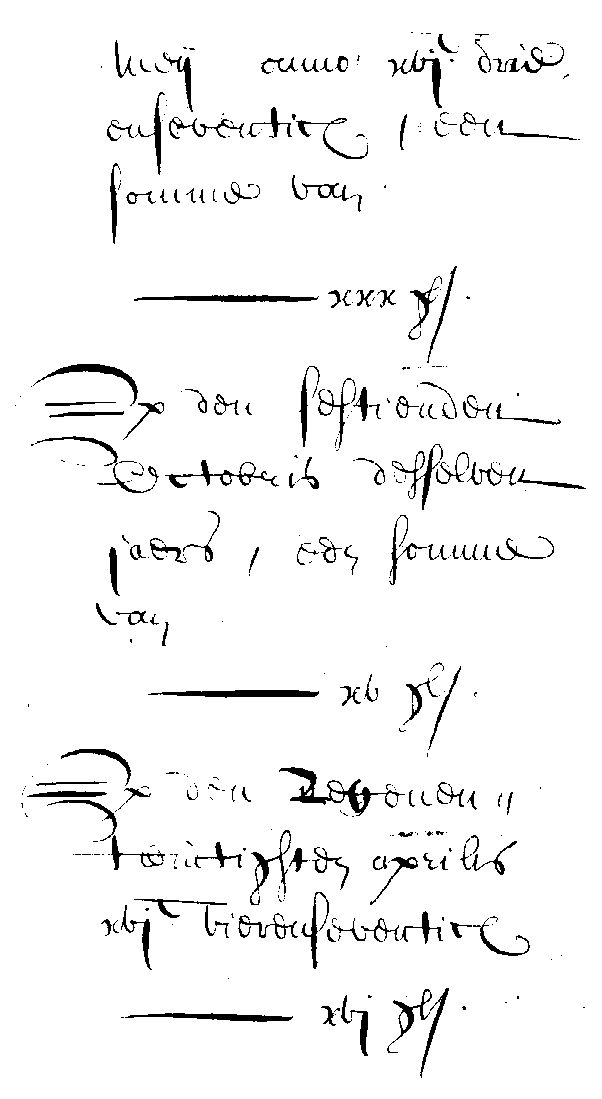 meij anno xvjc drie
enseventich, een
somme van
xxx gl.
Op den sestienden
Octobris desselven
jaers, een somme
van
xv gl.
Op den Negenen
twintichsten aprilis
xvjc vierenseventich
xvj gl.